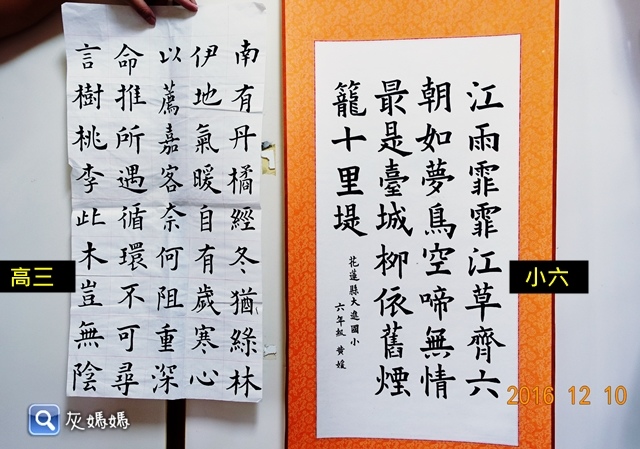 南有丹橘經冬猶綠林
伊地氣暖自有歲寒心
以薦嘉客奈何阻重深
命推所遇循環不可尋
言樹桃李此木豈無陰
高三
江雨霏霏江草齊六
朝如夢鳥空啼無情
最是臺城柳依舊煙
籠十里堤
花蓮縣大進國小
六年級 黃媛
小六
2016 12 10
灰媽媽